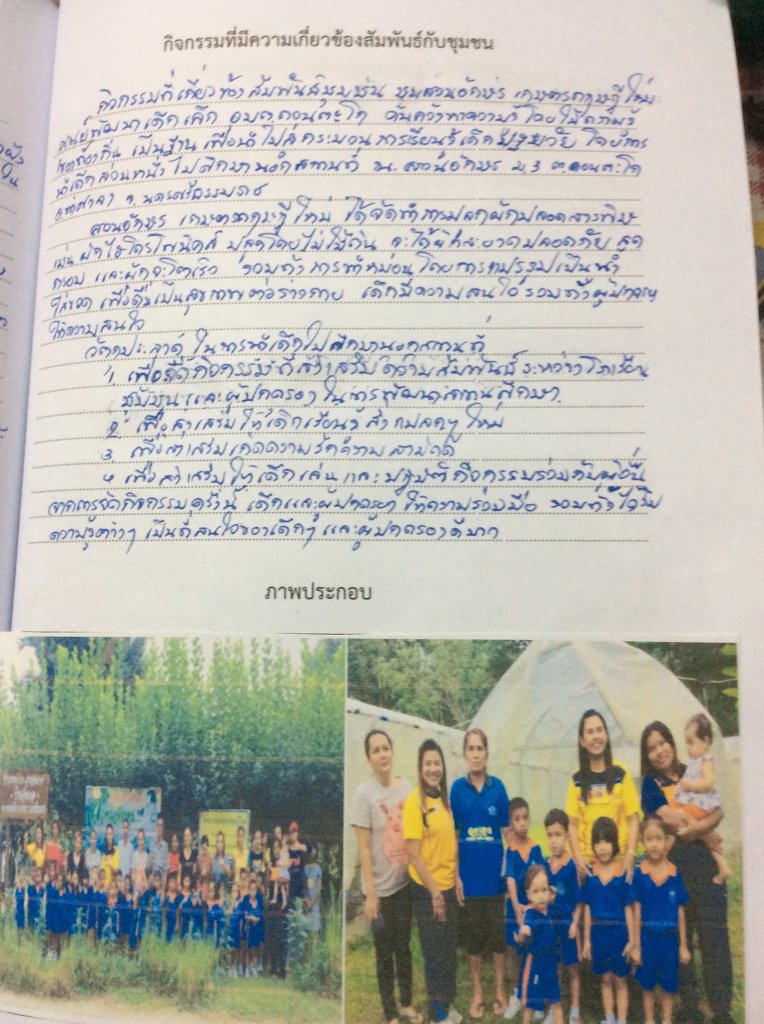 กิจกรรมที่มีความเกี่ยวข้องสัมพันธ์กับชุมชน
กิจกรรมที่เกี่ยวข้องสัมพันธ์ชุมชน ชมสวนอักษร เกษตรทฤษฎีใหม่
ศูนย์พัฒนาเด็กเล็ก อบต.ดอนตะโก ค้นคว้าหาความรู้ โดยใช้ความรู้
ท้องถิ่น เป็นฐาน เพื่อนำไปสู่กระบวนการเรียนรู้เด็กปฐมวัย โดยการ
นำเด็ก ไปศึกษานอกสถานที่ ณ. สวนอักษร ม.3 ต.ดอนตะโก
อ.ท่าศาลา จ.นครศรีธรรมราช
สวนอักษร เกษตรทฤษฎีใหม่ ได้จัดทำการปลูกผักปลอดสารพิษ
เช่น ผักไฮโดรโพนิคส์ ปลูกโดยไม่ใช้ดิน จะได้ผักสะอาดปลอดภัย สด
กรอบ และผักจะโตเร็ว รวมทั้งการทำหม่อน โดยการแปรรูปเป็นน้ำ
ใส่ขวด เพื่อดื่มเป็นสุขภาพต่อร่างกาย เด็กมีความสนใจ รวมทั้งผู้ปกครอง
ให้ความสนใจ
วัตถุประสงค์ ในการนำเด็กไปศึกษานอกสถานที่
1. เพื่อจัดกิจกรรมที่ส่งเสริมความสัมพันธ์ระหว่างโรงเรียน
ชุมชน และผู้ปกครอง ในการพัฒนาสถานศึกษา
2. เพื่อส่งเสริมให้เด็กเรียนรู้สิ่งแปลกๆ ใหม่
3. เพื่อส่งเสริมเกิดความรักความสามัคคี
4. เพื่อส่งเสริมให้เด็กเล่นและปฏิบัติกิจกรรมร่วมกับผู้อื่น
จากการจัดกิจกรรมครั้งนี้ เด็กและผู้ปกครอง ให้ความร่วมมือ รวมทั้งได้รับ
ความรู้ต่างๆ เป็นที่สนใจของเด็กๆ และผู้ปกครองดีมาก
ภาพประกอบ